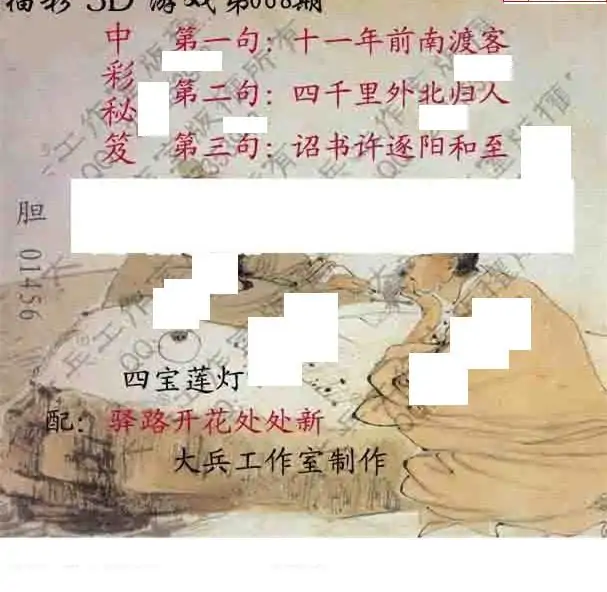 福彩 3D 游戏第008期
中彩秘笈
第一句：十一年前南渡客
第二句：四千里外北归人
第三句：诏书许逐阳和至
胆 01456
四宝莲灯
配：驿路开花处处新
大兵工作室制作